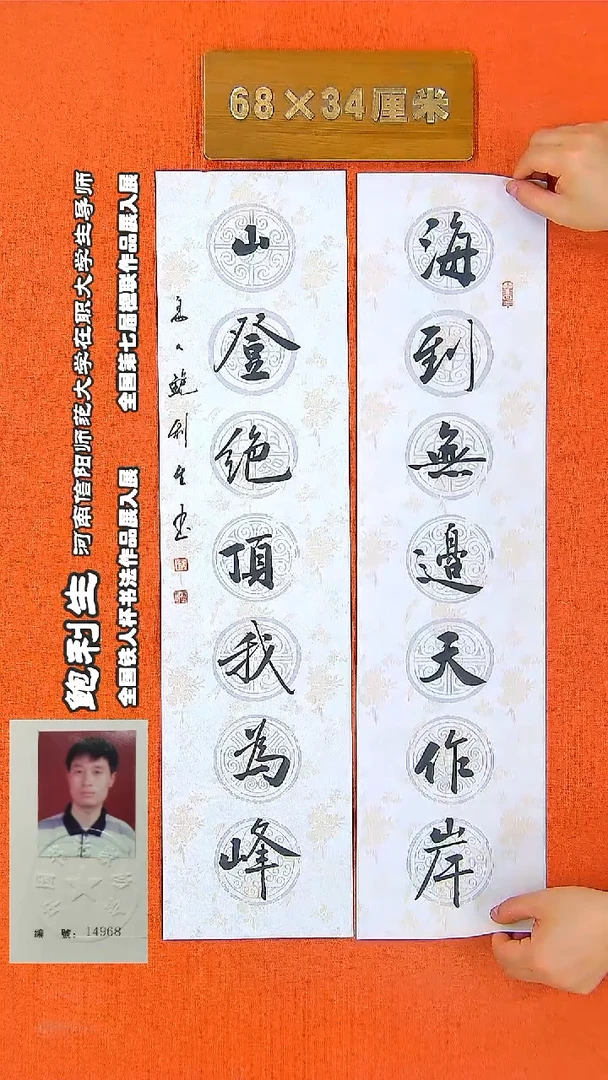 68×34厘米
海到無邊天作岸
山登絶頂我為峰
鮑利生
鲍利生 河南信阳师范大学在职大学生导师
全国铁人杯书法作品展入展 全国第七届楹联作品展入展
編 號: 14968